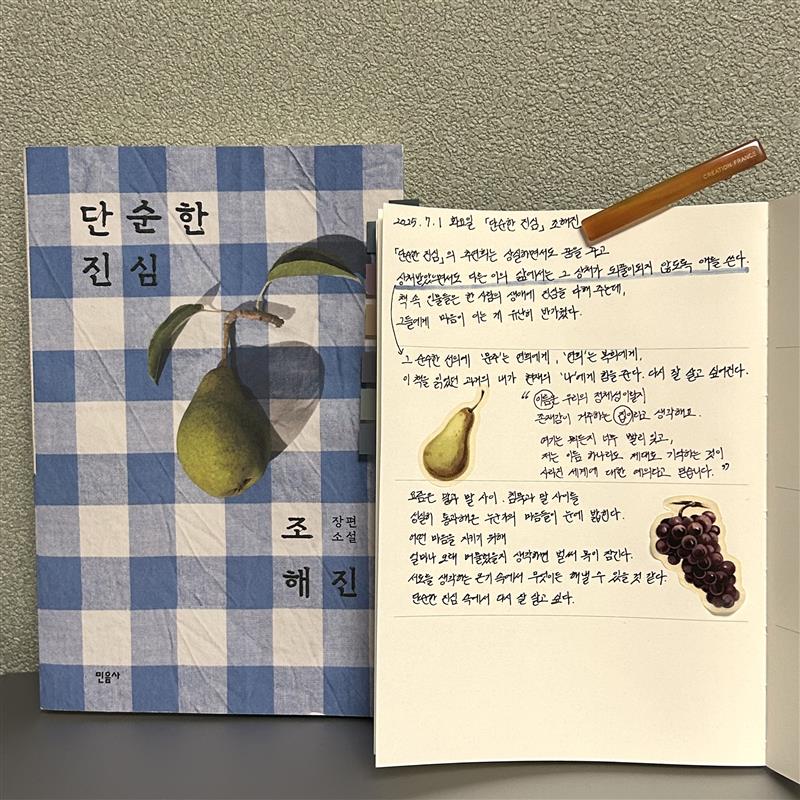 단순한
진심
조
해진
장편
소설
민음사
CREATION FRANCE
2025.7.1 화요일 「단순한 진심」 조해진
「단순한 진심」의 주인공은 상실하면서도 꿈을 꾸고
상처받았으면서도 다른 이의 삶에서는 그 상처가 되풀이되지 않도록 애를 쓴다.
책 속 인물들은 한 사람의 생애에 진심을 다해 주는데,
그들에게 마음이 이는 게 유난히 반가웠다.
그 순수한 선의에 '문주'는 연희에게, '연희'는 복희에게,
이 책을 읽었던 과거의 내가 현재의 '나'에게 힘을 준다. 다시 잘 살고 싶어진다.
“ 이름은 우리의 정체성이랄지
존재감이 거주하는 집이라고 생각해요.
여기는 뭐든지 너무 빨리 잊고,
저는 이름 하나라도 제대로 기억하는 것이
사라진 세계에 대한 예의라고 믿습니다. ”
요즘은 말과 말 사이, 침묵과 말 사이를
성실히 통과해온 누군가의 마음들이 눈에 밟힌다.
어떤 마음을 지키기 위해
얼마나 오래 머물렀을지 생각하면 벌써 목이 잠긴다.
서로를 생각하는 온기 속에서 무엇이든 해낼 수 있을 것 같다.
단순한 진심 속에서 다시 잘 살고 싶다.